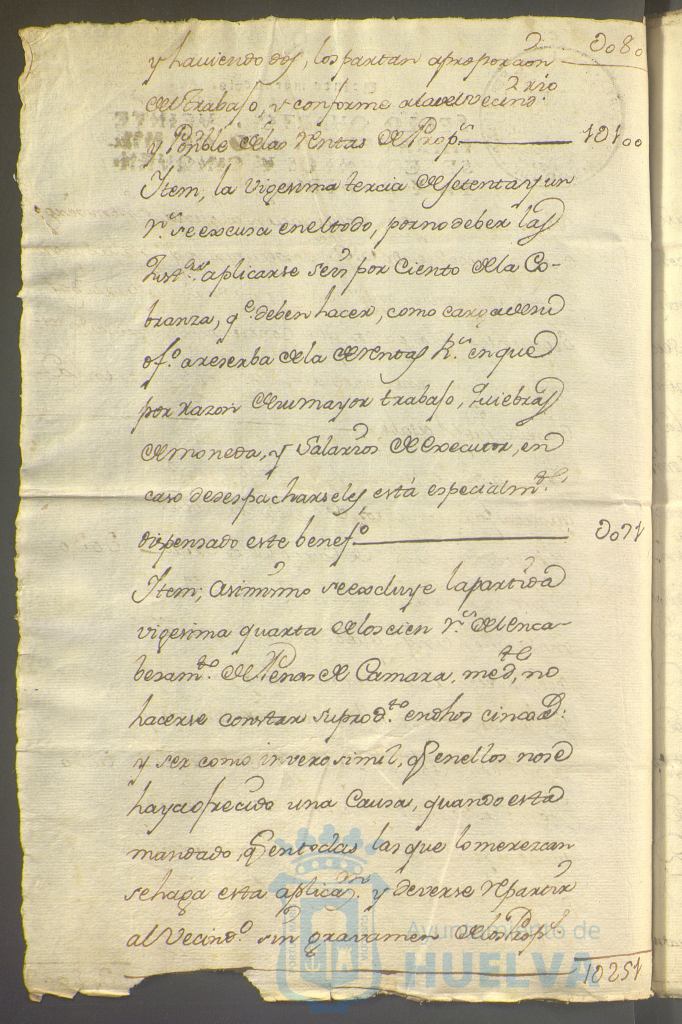 y haviendo dos, los partan aproporcion 2 ... D080
del trabajo, y conforme ala del vecind.rio
y Posible delas Rentas de Prop.s 1D100
Item, la vigesima tercia de setenta y un
r.s se excusa en el todo, por no deber las
Just.as aplicarse seis por Ciento dela Co-
branza, q.e deben hacer, como carga de su
of.o a reserba dela de Rentas R.s en que
por razon de su mayor trabajo, quiebras
de moneda, y Salarios de Executor, en
caso de despacharseles, está especialm.te
dispensado este benef.o D071
Item; asimismo se excluye la partida
vigesima quarta delos cien r.s del Enca-
bezam.to de Penas de Camara, med.te no
hacerse constar su prod.to en dhos cinco a.s:
y ser como inverosimil, q en ellos no se
haya ofrecido una Causa, quando está
mandado, q en todas las que lo merezcan
se haga esta aplicaz.n y deverse repartir
al Vecind.o sin gravamen delos Prop.s
1D251
Ayuntamiento de
HUELVA